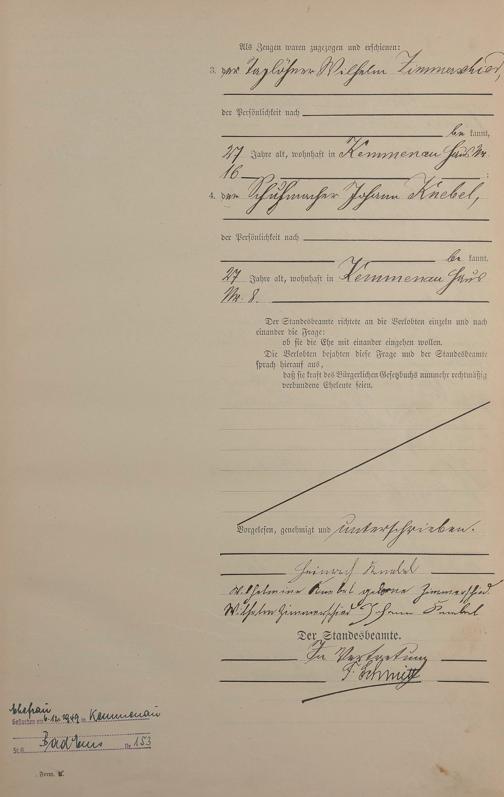 Als Zeugen waren zugezogen und erschienen:
3. der Taglöhner Wilhelm Zimmerschied,
der Persönlichkeit nach
be kannt,
27 Jahre alt, wohnhaft in Kemmenau Haus Nr.
16 ;
4. der Schuhmacher Johann Knebel,
der Persönlichkeit nach
be kannt,
27 Jahre alt, wohnhaft in Kemmenau Haus
Nr. 8.
Der Standesbeamte richtete an die Verlobten einzeln und nach
einander die Frage:
ob sie die Ehe mit einander eingehen wollen.
Die Verlobten bejahten diese Frage und der Standesbeamte
sprach hierauf aus,
daß sie kraft des Bürgerlichen Gesetzbuchs nunmehr rechtmäßig
verbundene Eheleute seien.
Vorgelesen, genehmigt und unterschrieben.
Heinrich Knebel
Wilhelmine Knebel geborne Zimmerschied
Wilhelm Zimmerschied Johann Knebel
Der Standesbeamte.
In Vertretung
Schmitt
Ehefrau
Gestorben am 6.12.1949 in Kemmenau
St.A. Bad Ems Nr. 153
Form.